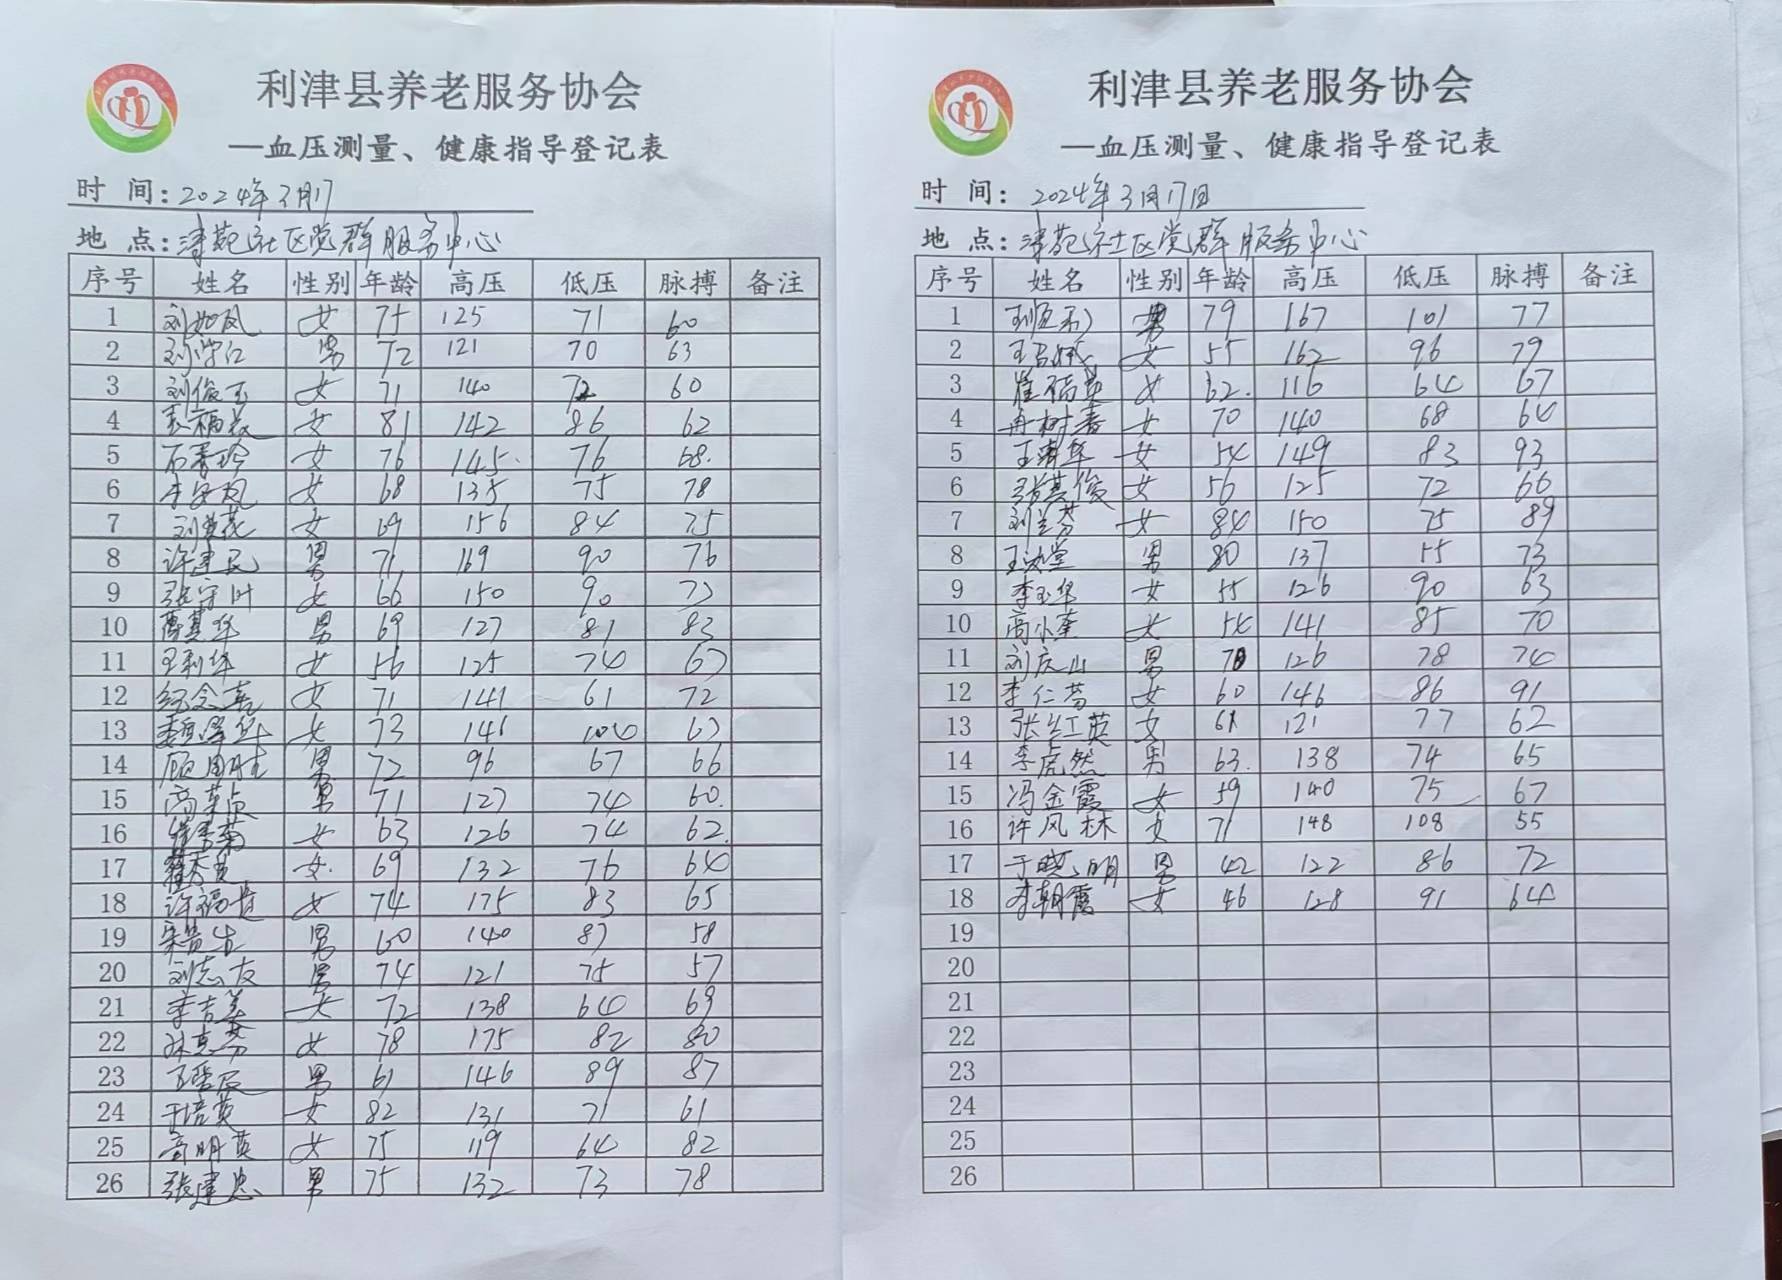 利津县养老服务协会
—血压测量、健康指导登记表
时 间:2024年3月17
地 点:津苑社区党群服务中心
序号 姓名 性别 年龄 高压 低压 脉搏 备注
1 刘如凤 女 75 125 71 60
2 刘学仁 男 72 121 70 63
3 刘俊玉 女 71 140 72 60
4 福 女 81 142 86 62
5 石秀珍 女 76 145 76 68
6 凤 女 68 135 75 78
7 刘兰花 女 69 156 84 75
8 许建民 男 71 169 90 76
9 张守叶 女 66 150 90 73
10 华 男 69 127 81 83
11 王利华 女 56 125 74 67
12 纪念喜 女 71 141 61 72
13 华 女 73 146 104 67
14 顾 男 72 96 67 66
15 高 男 71 127 74 60
16 崔秀菊 女 63 126 74 62
17 女 69 132 76 64
18 许福莲 女 74 175 83 65
19 男 60 140 87 58
20 刘志友 男 74 121 75 57
21 李吉美 女 72 138 64 69
22 女 78 175 82 80
23 男 61 146 89 87
24 于培英 女 82 131 71 61
25 高明英 女 75 119 64 82
26 张建忠 男 75 132 73 78
利津县养老服务协会
—血压测量、健康指导登记表
时 间:2024年3月17日
地 点:津苑社区党群服务中心
序号 姓名 性别 年龄 高压 低压 脉搏 备注
1 男 79 167 101 77
2 王 女 55 162 96 79
3 崔福英 女 62 116 64 67
4 冉树春 女 70 140 68 64
5 王清华 女 54 149 83 93
6 张其俊 女 56 125 72 66
7 刘兰芬 女 84 150 75 89
8 王 堂 男 80 137 55 73
9 李玉华 女 55 126 90 63
10 高小奎 女 54 141 85 70
11 刘庆山 男 126 78 74
12 李仁芬 女 60 146 86 91
13 张红英 女 61 121 77 62
14 李虎然 男 63 138 74 65
15 冯金霞 女 59 140 75 67
16 许风林 女 71 148 108 55
17 于晓明 男 42 122 86 72
18 李朝霞 女 46 128 91 64
19
20
21
22
23
24
25
26